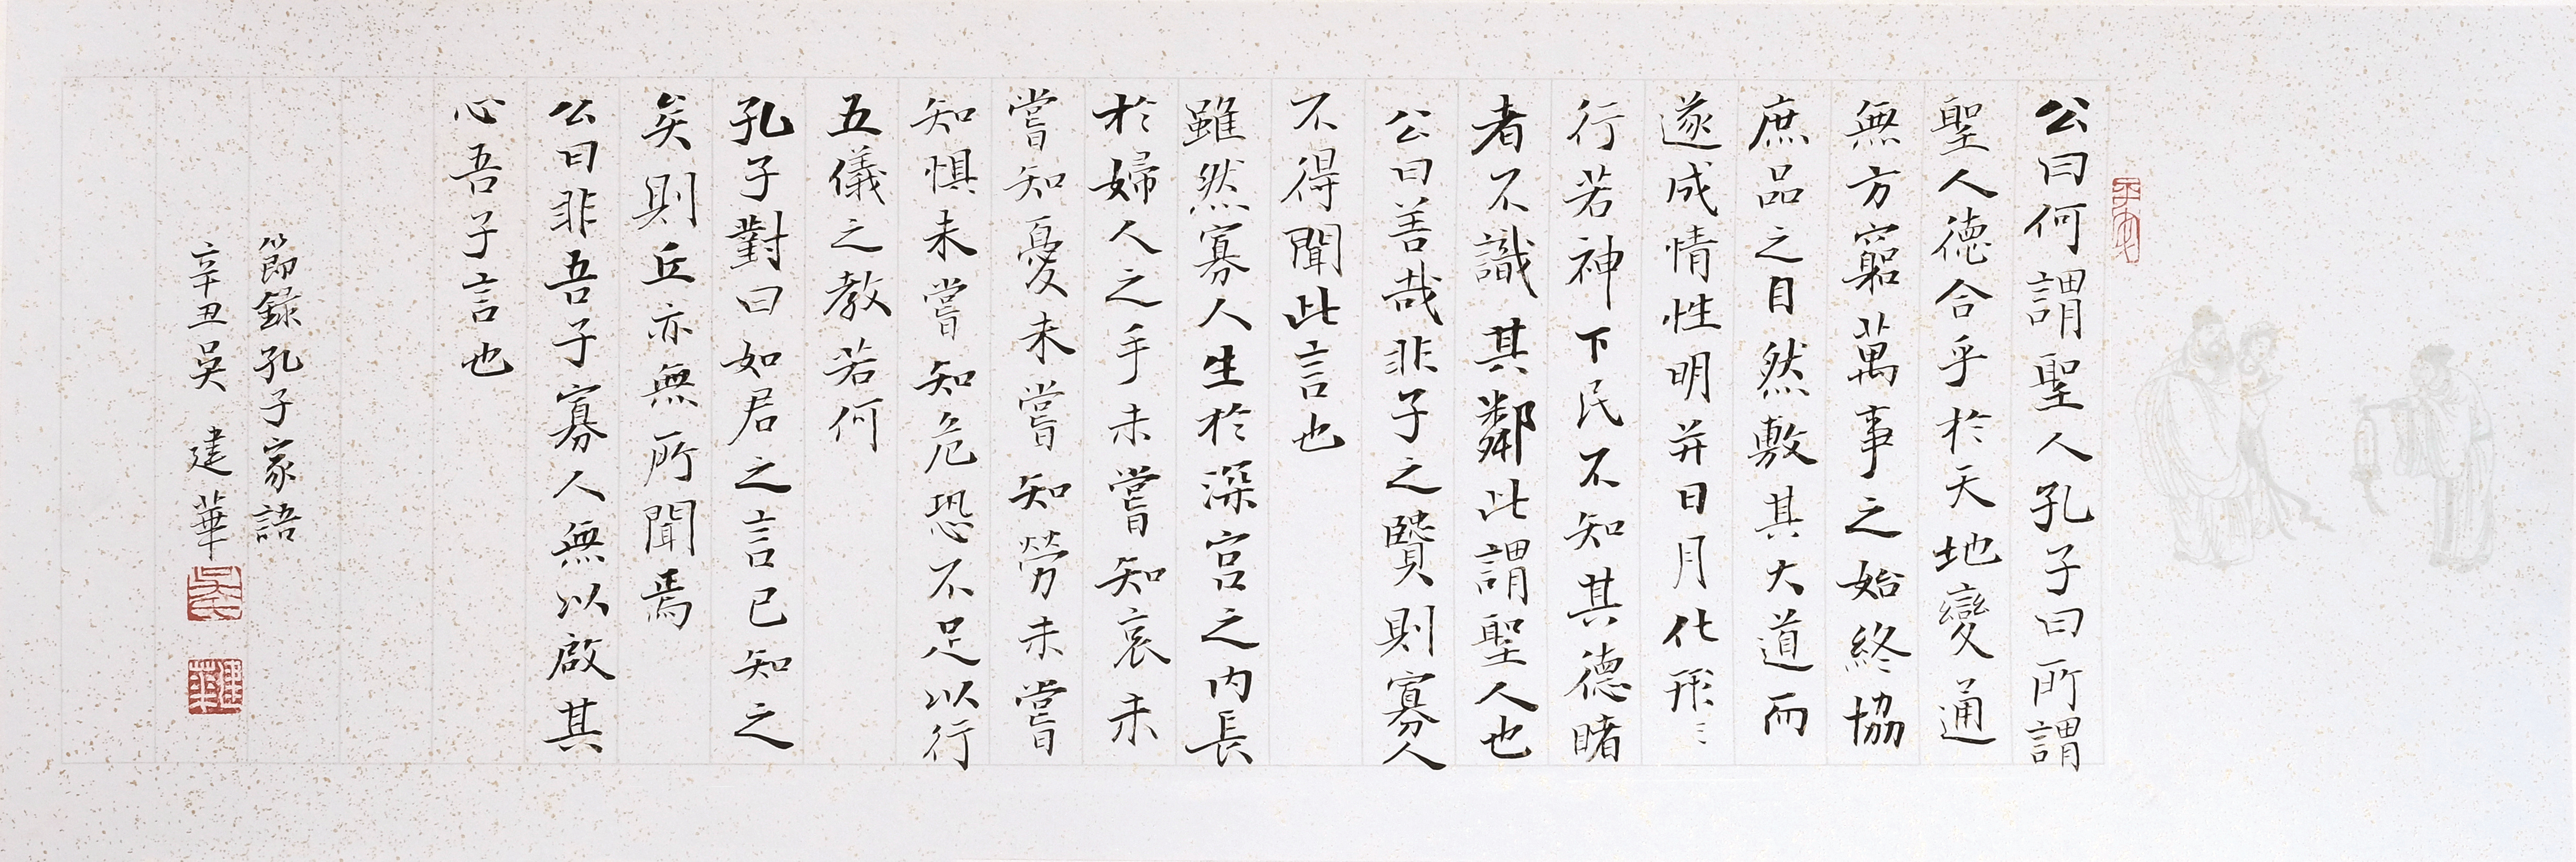 公曰何謂聖人孔子曰所謂
聖人德合乎於天地變通
無方窮萬事之始終協
庶品之自然敷其大道而
遂成情性明并日月化形〻
行若神下民不知其德睹
者不識其鄰此謂聖人也
公曰善哉非子之賢則寡人
不得聞此言也
雖然寡人生於深宮之內長
於婦人之手未嘗知哀未
嘗知憂未嘗知勞未嘗
知懼未嘗知危恐不足以行
五儀之教若何
孔子對曰如君之言已知之
矣則丘亦無所聞焉
公曰非吾子寡人無以啟其
心吾子言也
節錄孔子家語
辛丑吳建華
吳氏
建華